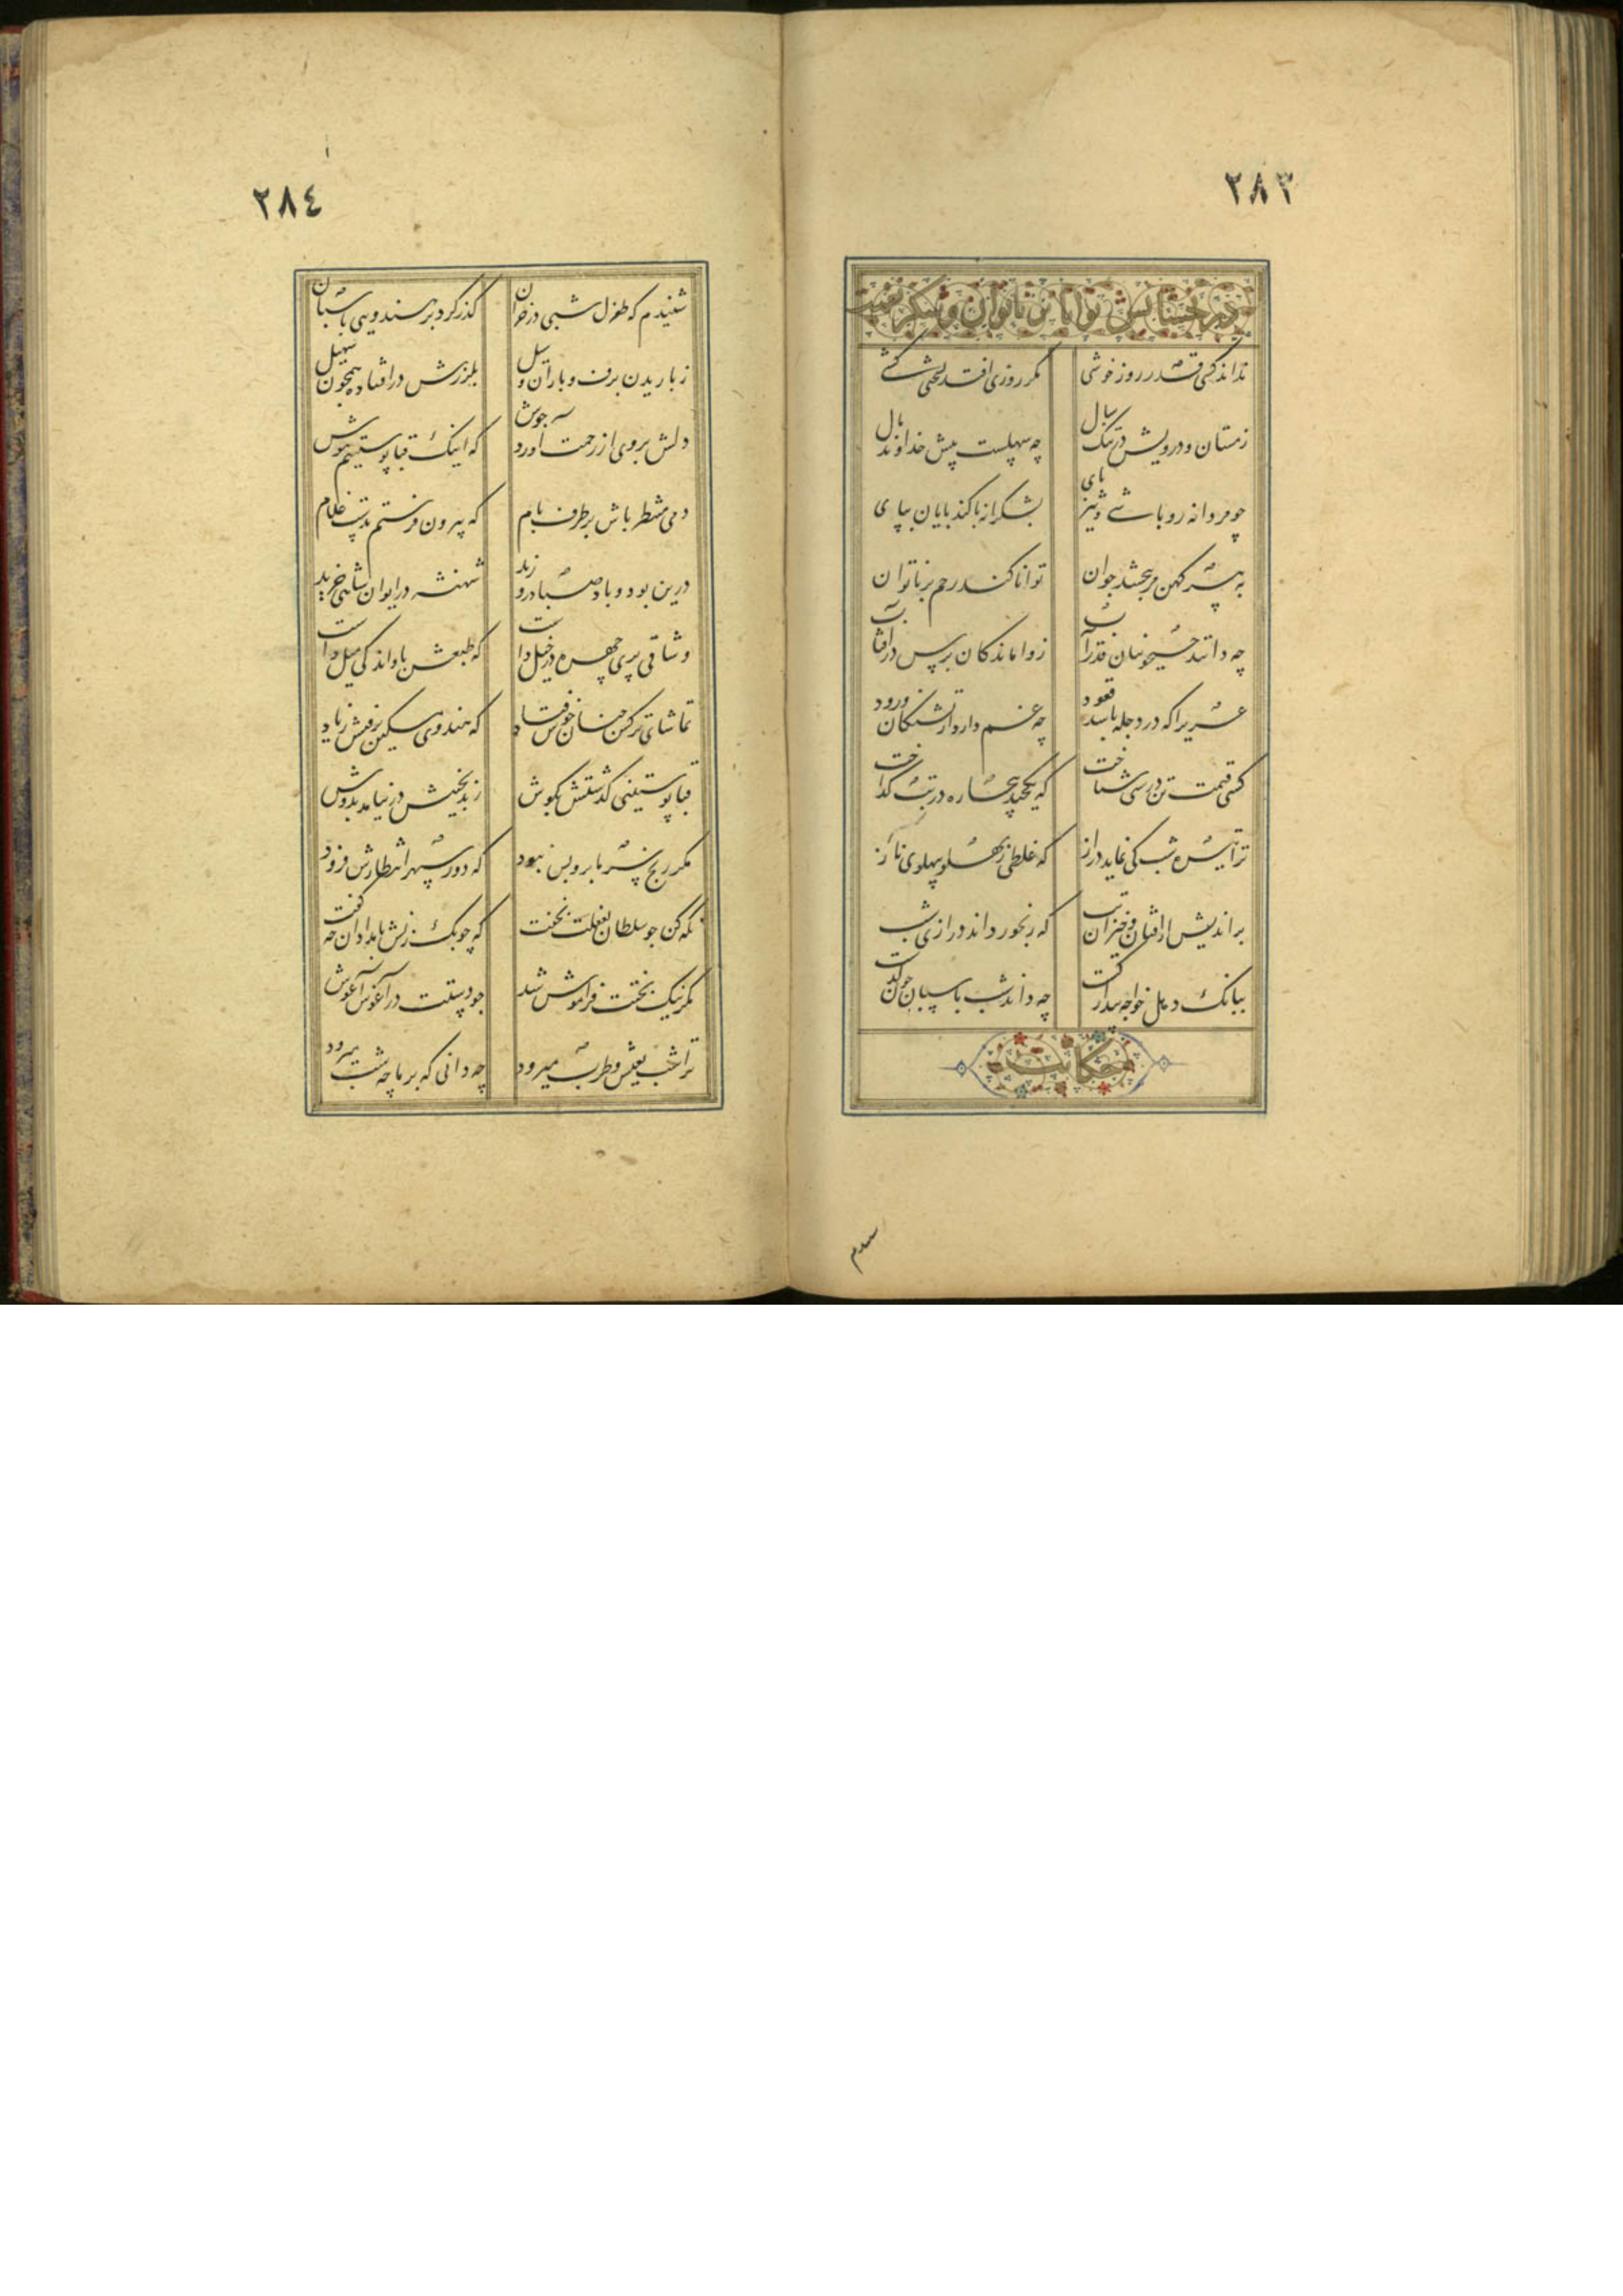 ٢٨٣
در بخشایش توانا بر ناتوان و شکر نعمت
نداند کسی قدر روز خوشی مکر روزی افتد بسختی کشی
زمستان و درویش در تنک سال چه سهلست پیش خداوند مال
چو مردانه رو باشی و تیز پای بشکرانه با کند پایان بپای
به پیر کهن بر ببخشد جوان توانا کند رحم بر ناتوان
چه دانند جیحونیان قدر آب ز واماندکان پرس در آفتاب
عرب را که در دجله باشد قعود چه غم دارد از تشنکان زرود
کسی قیمت تن درستی شناخت که یکچند بیچاره در تب کداخت
ترا تیره شب کی نماید دراز که غلطی ز پهلو بپهلوی ناز
بر اندیش از افتان و خیزان تب که رنجور داند درازی شب
ببانک دهل خواجه بیدار کشت چه داند شب پاسبان چون کذشت
حکایت
٢٨٤
شنیدم که طغرل شبی در خزان کذر کرد بر هندویی پاسبان
ز باریدن برف و باران و سیل بلرزش در افتاده همچون سهیل
دلش بر وی از رحمت آورد جوش که اینک قبا پوستینم بپوش
دمی منتظر باش بر طرف بام که بیرون فرستم بدست غلام
درین بود و باد صبا در وزید شهنشه در ایوان شاهی خزید
وشاقی پری چهره در خیل داشت که طبعش باو اندکی میل داشت
تماشای ترکش چنان خوش فتاد که هندوی مسکین برفتش ز یاد
قبا پوستینی کذشتش بکوش ز بدبختیش در نیامد بدوش
مکر رنج سرما برو بس نبود که دور سپهر انتظارش فزود
نکه کن چو سلطان بغفلت بخفت که چوبک زنش بامدادان چه کفت
مکر نیک بختت فراموش شد چو دستت در آغوش آغوش
ترا شب بعیش و طرب میرود چه دانی که بر ما چه شب میرود